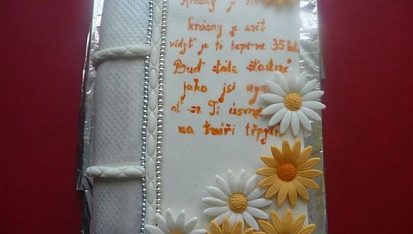 krásný je život
krásný je svět
vždyť je ti teprve 35 let
Buď stále šťastná
jako jsi
ať se Ti úsměv
na tváři třpytí